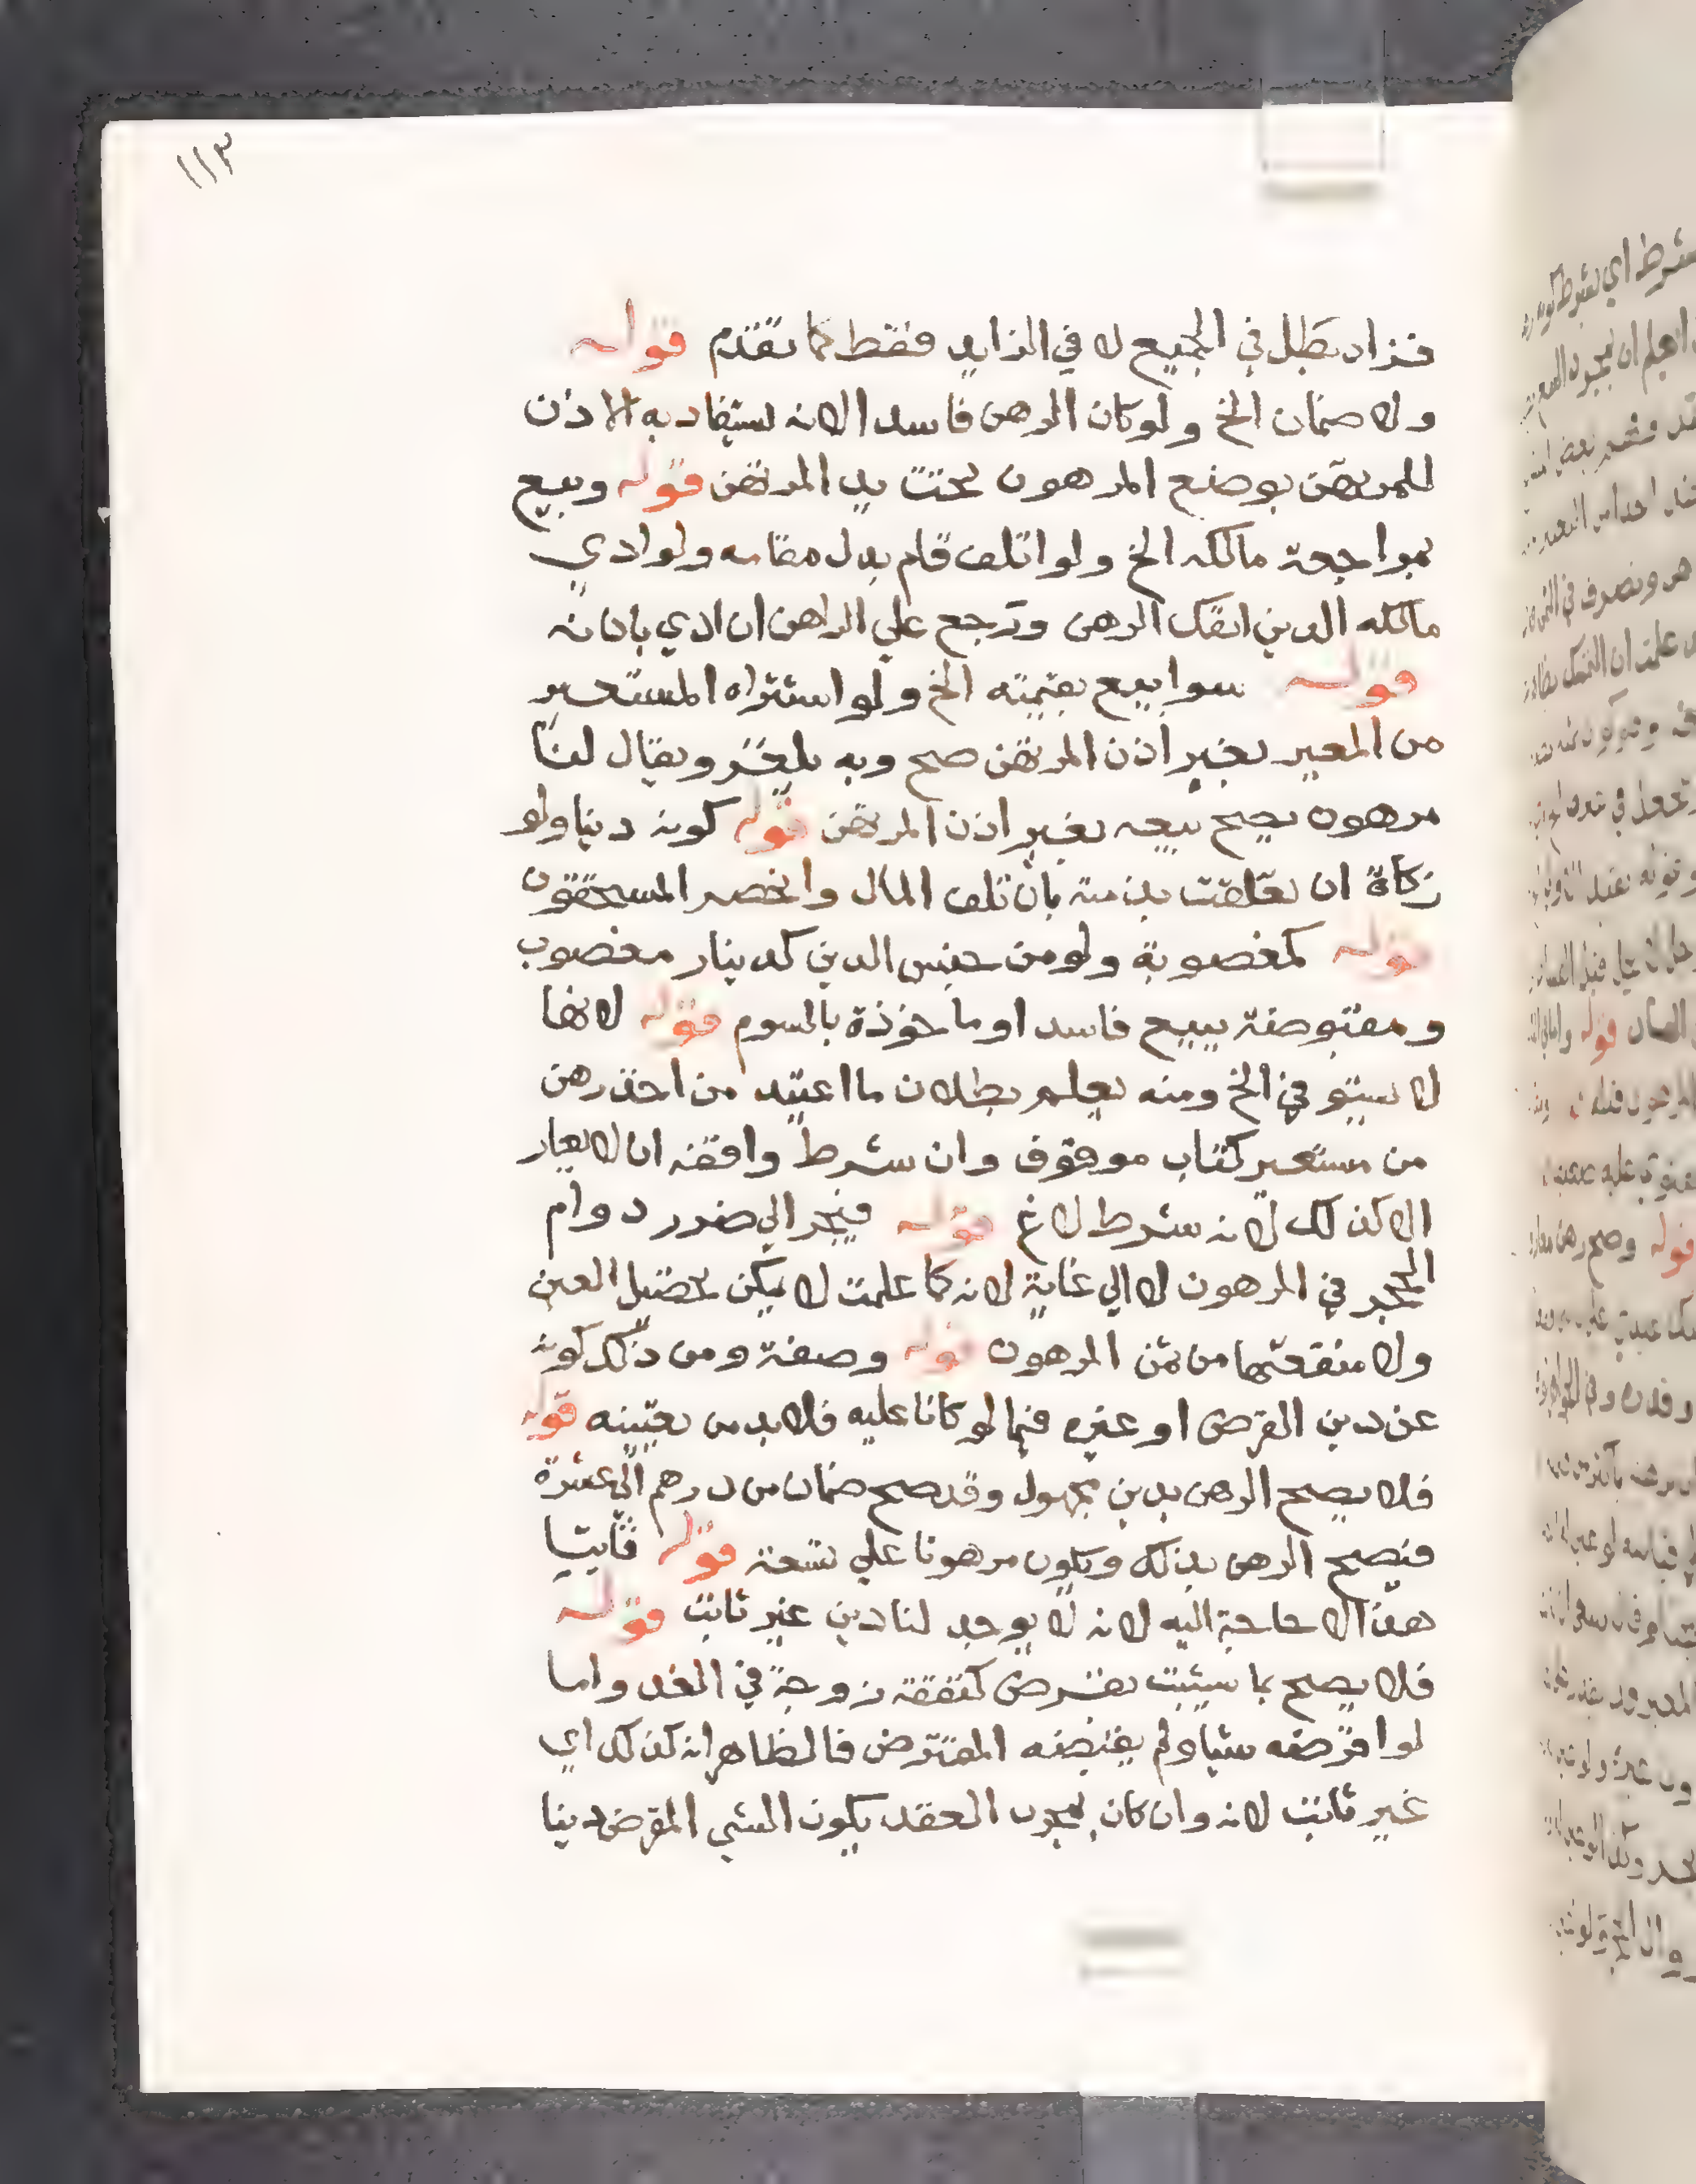 ١١٣
فزاد بطل في الجميع لا في الزايد فقط كما تقدم قوله
ولا ضمان الخ ولو كان الرهن فاسدا لانه استفاد به الاذن
للمرتهن بوضع المرهون تحت يد المرتهن قوله وبيع
بمراجعة مالكه الخ ولو اتلف قام بدل مقامه ولو ادي
مالكه الدين انفك الرهن ورجع علي الراهن ان ادي باذنه
قوله سوا بيع بقيمته الخ ولو اشتراه المستعير
من المعير بغير اذن المرتهن صح وبه يلغز ويقال لنا
مرهون يصح بيعه بغير اذن المرتهن قوله كونه دينا ولو
زكاة ان تعلقت بذمته بان تلف المال وانحصر المستحقون
قوله كمغصوبة ولو من جنس الدين كدينار مغصوب
ومقبوضة ببيع فاسد او ماخوذة بالسوم قوله لانها
لا تستوفي الخ ومنه يعلم بطلان ما اعتيد من اخذ رهن
من مستعير كتاب موقوف وان شرط واقفه ان لا يعار
الا كذلك لانه شرط لاغ قوله فيجر الي ضرر دوام
الحجر في المرهون لا الي غاية لانه كما علمت لا يمكن تحصيل العين
ولا منفعتها من ثمن المرهون قوله وصفة ومن ذلك كونه
عن دين القرض او غيره فيما لو كانا عليه فلا بد من تعيينه قوله
فلا يصح الرهن بدين مجهول وقد صح ضمان من درهم الي عشرة
فيصح الرهن بذلك ويكون مرهونا علي تسعة قوله ثابتا
هذا لا حاجة اليه لانه لا يوجد لنا دين غير ثابت قوله
فلا يصح بما سيثبت بقرض كنفقة زوجة في الغد واما
لو اقرضه شيا ولم يقبضه المقترض فالظاهر انه كذلك اي
غير ثابت لانه وان كان بمجرد العقد يكون الشي المقرض دينا